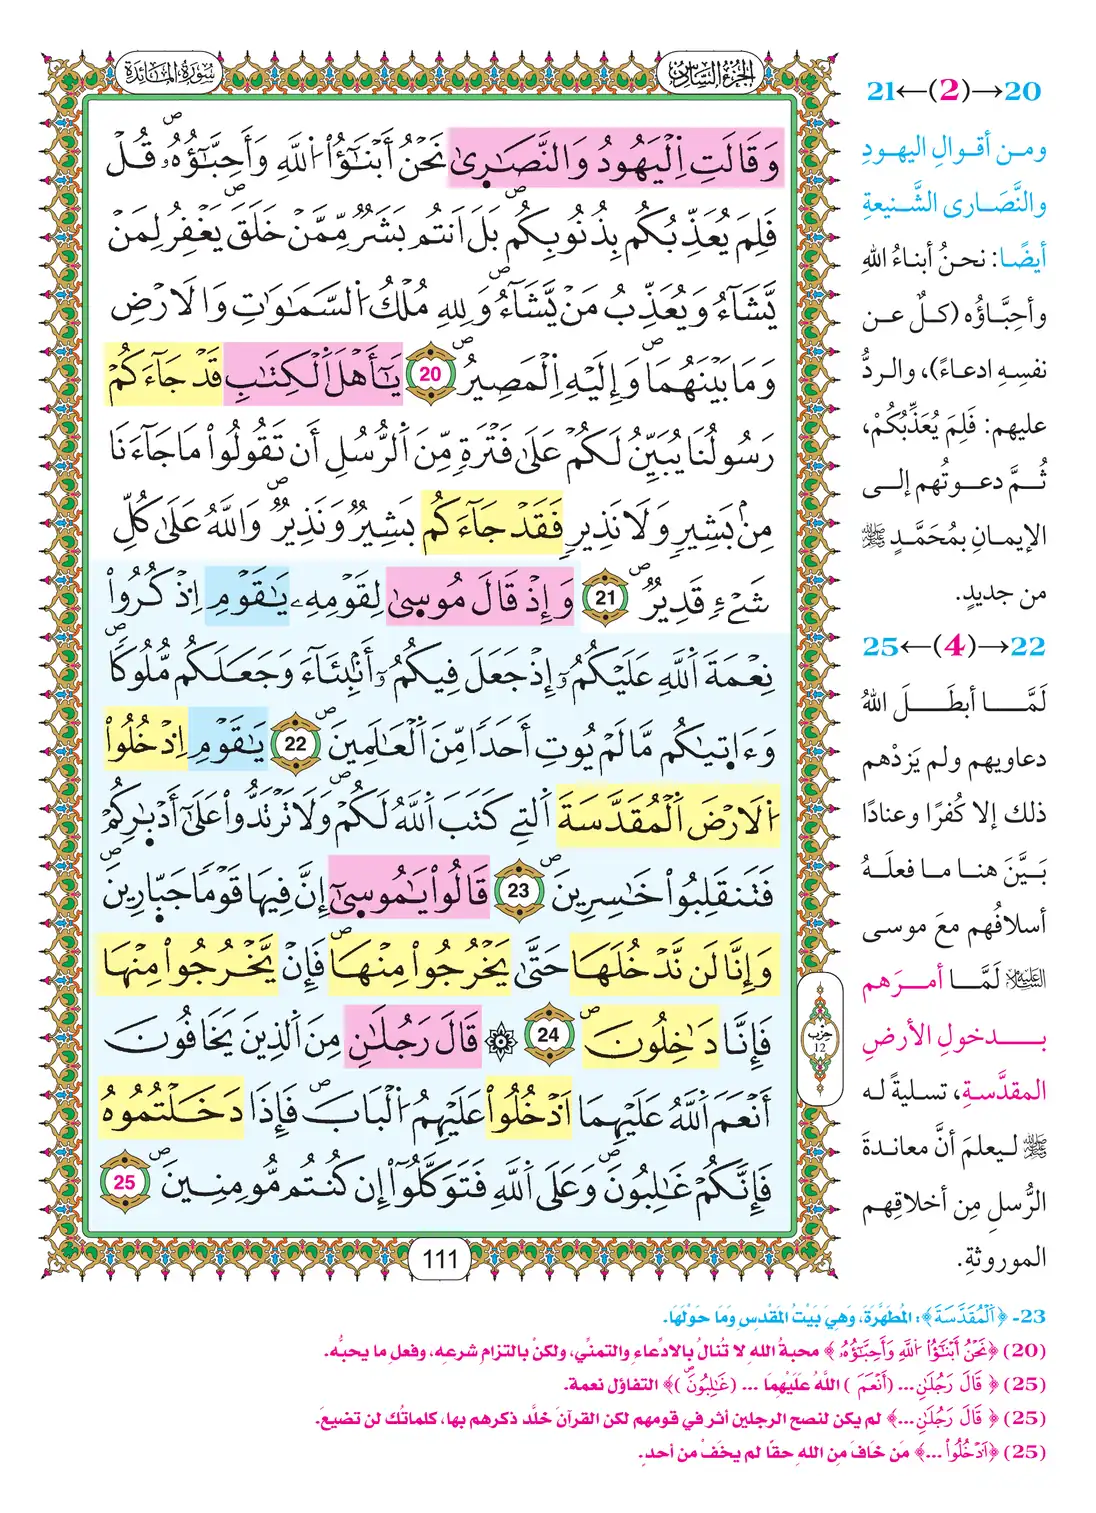 الجزء السادس
سورة المائدة
وَقَالَتِ اِ۬لْيَهُودُ وَالنَّصَٰر۪يٰ نَحْنُ أَبْنَٰٓؤُاْ اُ۬للَّهِ وَأَحِبَّٰٓؤُهُۥۖ قُلْ
فَلِمَ يُعَذِّبُكُم بِذُنُوبِكُمۖ بَلَ اَنتُم بَشَرٞ مِّمَّنْ خَلَقَۖ يَغْفِرُ لِمَنْ
يَّشَآءُ وَيُعَذِّبُ مَنْ يَّشَآءُۖ وَلِلهِ مُلْكُ اُ۬لسَّمَٰوَٰتِ وَالَارْضِ
وَمَا بَيْنَهُمَاۖ وَإِلَيْهِ اِ۬لْمَصِيرُۖ 20 يَٰٓأَهْلَ اَ۬لْكِتَٰبِ قَدْ جَآءَكُمْ
رَسُولُنَا يُبَيِّنُ لَكُمْ عَلَىٰ فَتْرَةٖ مِّنَ اَ۬لرُّسُلِ أَن تَقُولُواْ مَا جَآءَنَا
مِنۢ بَشِيرٖ وَلَا نَذِيرٖ فَقَدْ جَآءَكُم بَشِيرٞ وَنَذِيرٞۖ وَاللَّهُ عَلَىٰ كُلِّ
شَےْءٖ قَدِيرٞۖ 21 وَإِذْ قَالَ مُوس۪يٰ لِقَوْمِهِۦ يَٰقَوْمِ اِ۟ذْكُرُواْ
نِعْمَةَ اَ۬للَّهِ عَلَيْكُمُۥٓ إِذْ جَعَلَ فِيكُمُۥٓ أَنۢبِئَآءَ وَجَعَلَكُم مُّلُوكاٗۖ
وَءَات۪يٰكُم مَّا لَمْ يُوتِ أَحَداٗ مِّنَ اَ۬لْعَٰلَمِينَۖ 22 يَٰقَوْمِ اِ۟دْخُلُواْ
اُ۬لَارْضَ اَ۬لْمُقَدَّسَةَ اَ۬لتِے كَتَبَ اَ۬للَّهُ لَكُمْۖ وَلَا تَرْتَدُّواْ عَلَىٰٓ أَدْبٰ۪رِكُمْ
فَتَنقَلِبُواْ خَٰسِرِينَۖ 23 قَالُواْ يَٰمُوس۪يٰٓ إِنَّ فِيهَا قَوْماٗ جَبّ۪ارِينَۖ
وَإِنَّا لَن نَّدْخُلَهَا حَتَّىٰ يَخْرُجُواْ مِنْهَاۖ فَإِنْ يَّخْرُجُواْ مِنْهَا
فَإِنَّا دَٰخِلُونَۖ 24 ۞ قَالَ رَجُلَٰنِ مِنَ اَ۬لذِينَ يَخَافُونَ
أَنْعَمَ اَ۬للَّهُ عَلَيْهِمَا اَ۟دْخُلُواْ عَلَيْهِمُ اُ۬لْبَابَۖ فَإِذَا دَخَلْتُمُوهُ
فَإِنَّكُمْ غَٰلِبُونَۖ وَعَلَى اَ۬للَّهِ فَتَوَكَّلُوٓاْ إِن كُنتُم مُّومِنِينَۖ 25
حزب
12
111
20→(2)←21
ومن أقوالِ اليهودِ
والنَّصَارى الشَّنيعةِ
أيضًا: نحنُ أبناءُ اللهِ
وأحِبَّاؤُه (كلٌ عن
نفسِهِ ادعاءً)، والردُّ
عليهم: فَلِمَ يُعَذِّبُكُمْ،
ثُمَّ دعوتُهم إلى
الإيمانِ بمُحَمَّدٍ ﷺ
من جديدٍ.
22→(4)←25
لَمَّا أبطلَ اللهُ
دعاويهم ولم يَزدْهم
ذلك إلا كُفرًا وعنادًا
بَيَّنَ هنا ما فعلَهُ
أسلافُهم معَ موسى
عليه السلام لَمَّا أمرَهم
بدخولِ الأرضِ
المقدَّسةِ، تسليةً له
ﷺ ليعلمَ أنَّ معاندةَ
الرُّسلِ مِن أخلاقِهم
الموروثةِ.
23- ﴿اَ۬لْمُقَدَّسَةَ﴾: المُطَهَّرَةَ، وَهِيَ بَيْتُ المَقْدِسِ وَمَا حَوْلَهَا.
(20) ﴿نَحْنُ أَبْنَٰٓؤُاْ اُ۬للَّهِ وَأَحِبَّٰٓؤُهُۥ﴾ محبةُ اللهِ لا تُنالُ بالادِّعاءِ والتمنِّي، ولكنْ بالتزامِ شرعِه، وفعلِ ما يحبُّه.
(25) ﴿قَالَ رَجُلَٰنِ... (أَنْعَمَ) اللَّهُ عَلَيْهِمَا ... (غَٰلِبُونَۖ)﴾ التفاؤل نعمة.
(25) ﴿قَالَ رَجُلَٰنِ...﴾ لم يكن لنصح الرجلين أثر في قومهم لكن القرآنَ خلَّد ذكرهم بها، كلماتُك لن تضيعَ.
(25) ﴿اَ۟دْخُلُواْ ...﴾ مَن خَافَ مِن اللهِ حقًا لم يخَفْ من أحدٍ.